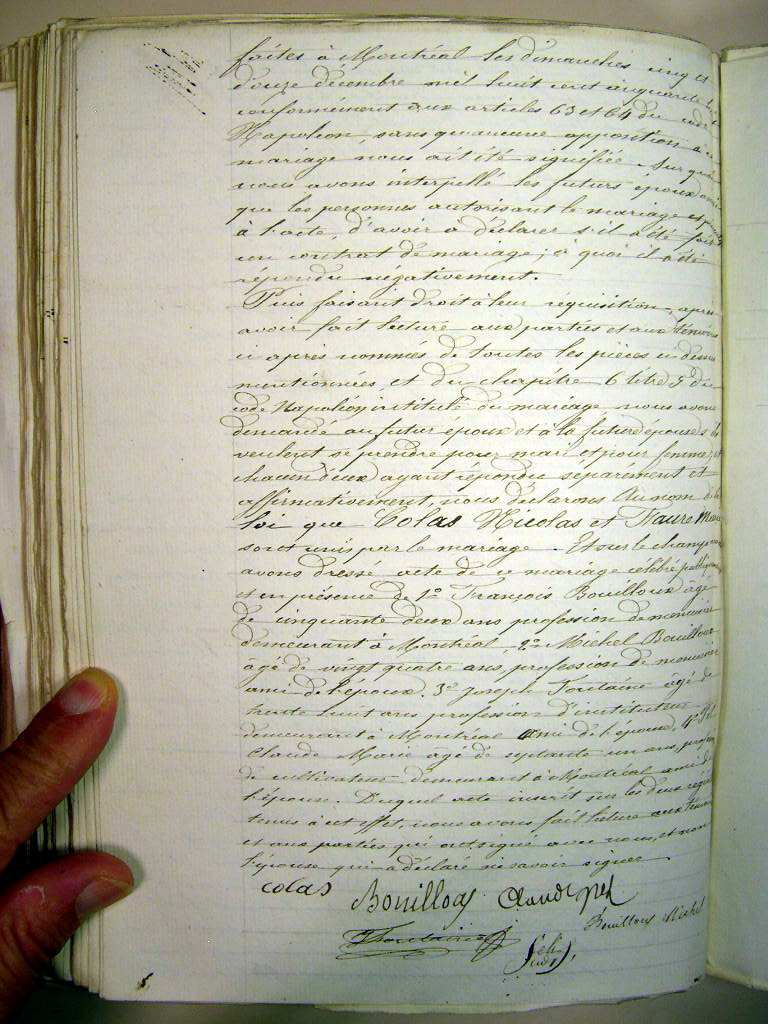 faites à Montréal les dimanches cinq et
douze décembre mil huit cent cinquante
conformément aux articles 63 et 64 du code
Napoléon, sans qu'aucune opposition à ce
mariage nous ait été signifiée. Sur quoi
nous avons interpellé les futurs époux ainsi
que les personnes autorisant le mariage et
à l'acte, d'avoir à déclarer s'il a été fait
un contrat de mariage; à quoi il a été
répondu négativement.
Puis faisant droit à leur réquisition, après
avoir fait lecture aux parties et aux témoins
ci après nommés de toutes les pièces ci dessus
mentionnées, et du chapitre 6 titre 5 du
code Napoléon intitulé du mariage nous avons
demandé au futur époux et à la future épouse s'ils
veulent se prendre pour mari et pour femme, et
chacun d'eux ayant répondu séparément et
affirmativement, nous déclarons Au nom de la
loi que Colas Nicolas et Faure Marie
sont unis par le mariage. Et sur le champ
avons dressé acte de ce mariage célébré
et en présence de 1º François Bouilloux âgé
de cinquante deux ans profession de menuisier
demeurant à Montréal, 2º Michel Bouilloux
âgé de vingt quatre ans, profession de menuisier
ami de l'époux. 3º Joseph Fontaine âgé de
trente huit ans profession d'instituteur
demeurant à Montréal ami de l'épouse, 4º
Claude Marie âgé de septante un ans, profession
de cultivateur demeurant à Montréal ami de
l'épouse. Duquel acte inscrit sur les deux registres
tenus à cet effet, nous avons fait lecture aux témoins
et aux parties qui ont signé avec nous, et non
l'épouse qui a déclaré ne savoir signer
colas Bouilloux Claude
Bouilloux Michel
Fontaine